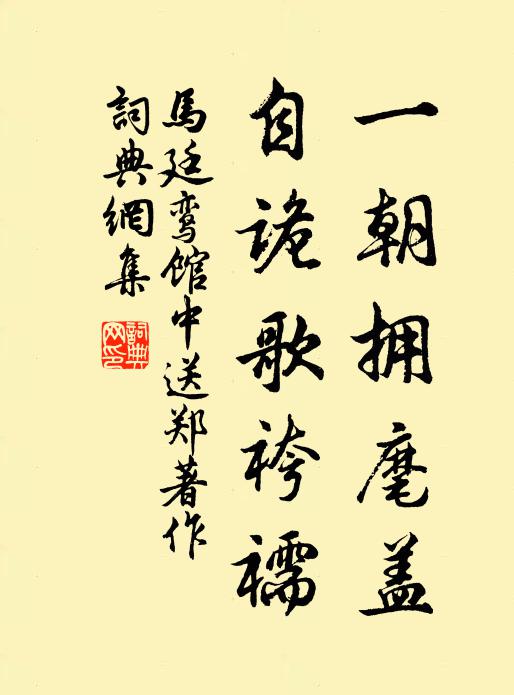 一朝拥麾盖
自诡歌袴襦
馬廷鸾馆中送郑著作
詞典網集
詞典网印